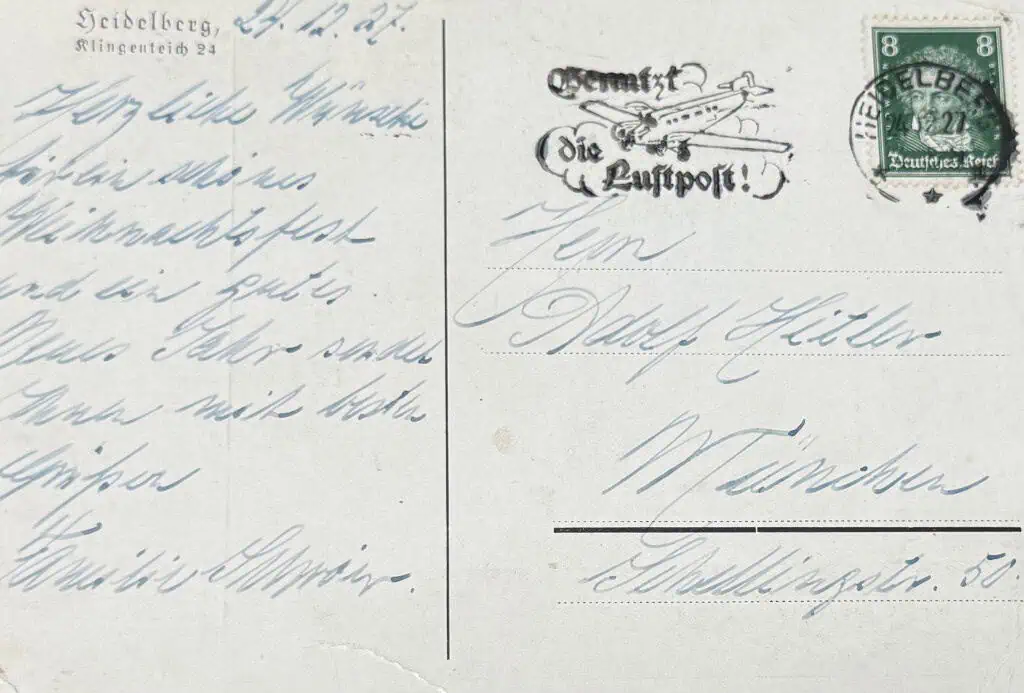 Heidelberg, 24.12.27.
Klingenteich 24
Herzliche Wünsche
für ein schönes
Weihnachtsfest
und ein gutes
Neues Jahr sendet
Ihnen mit besten
Grüßen
Familie
Benutzt
die
Luftpost!
8 8
HEIDELBERG
24.12.27
Deutsches Reich
Herrn
Adolf Hitler
München
Schellingstr. 50.